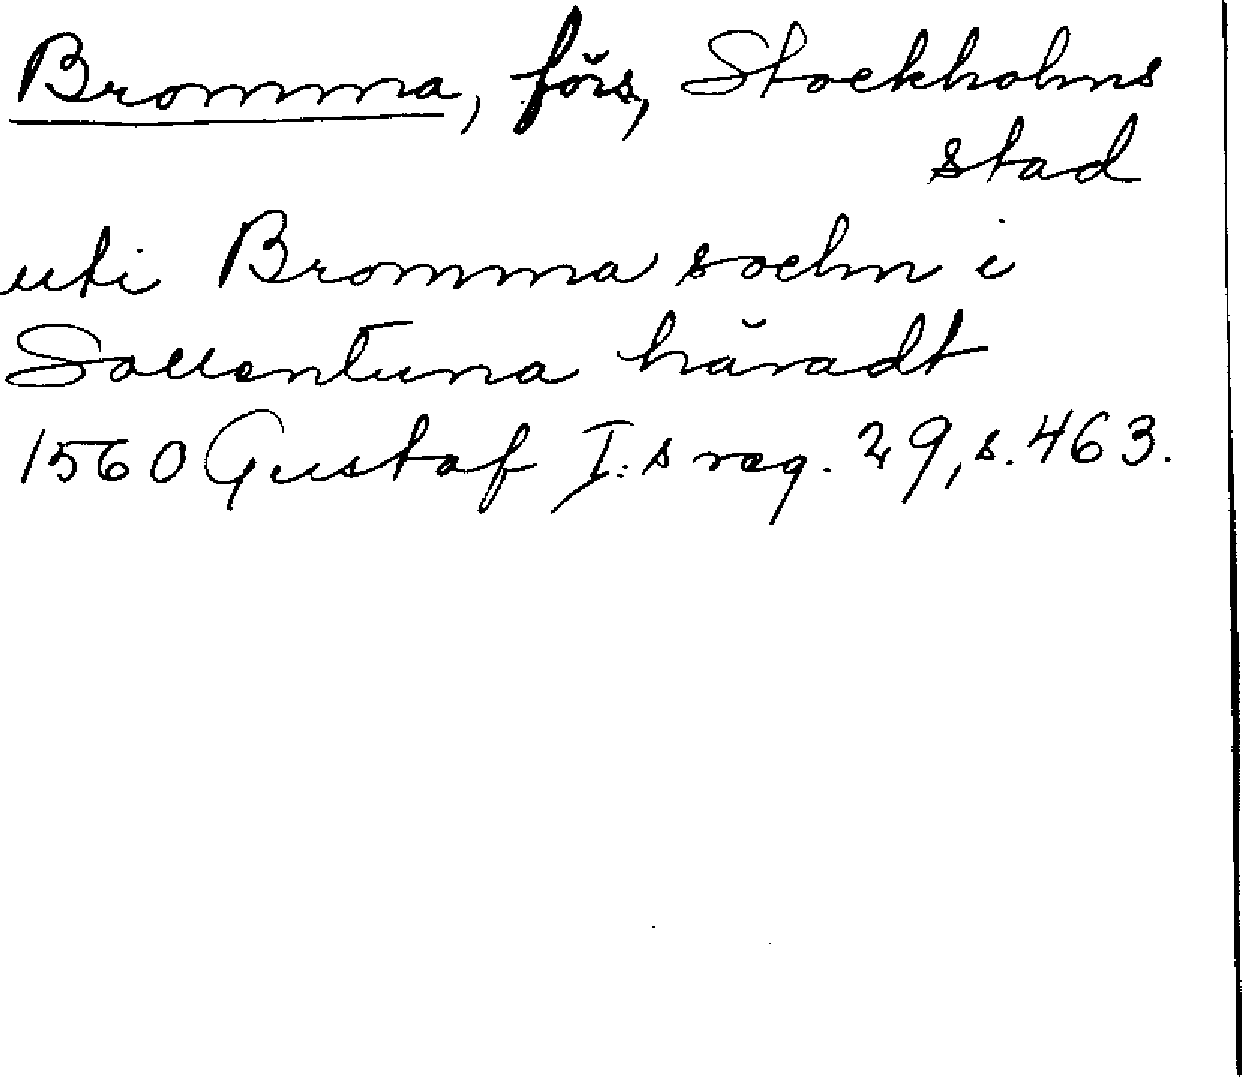 Bromma, förs, Stockholms
stad
uti Bromma sochn i
Sollentuna häradt
1560 Gustaf I:s reg. 29, s. 463.